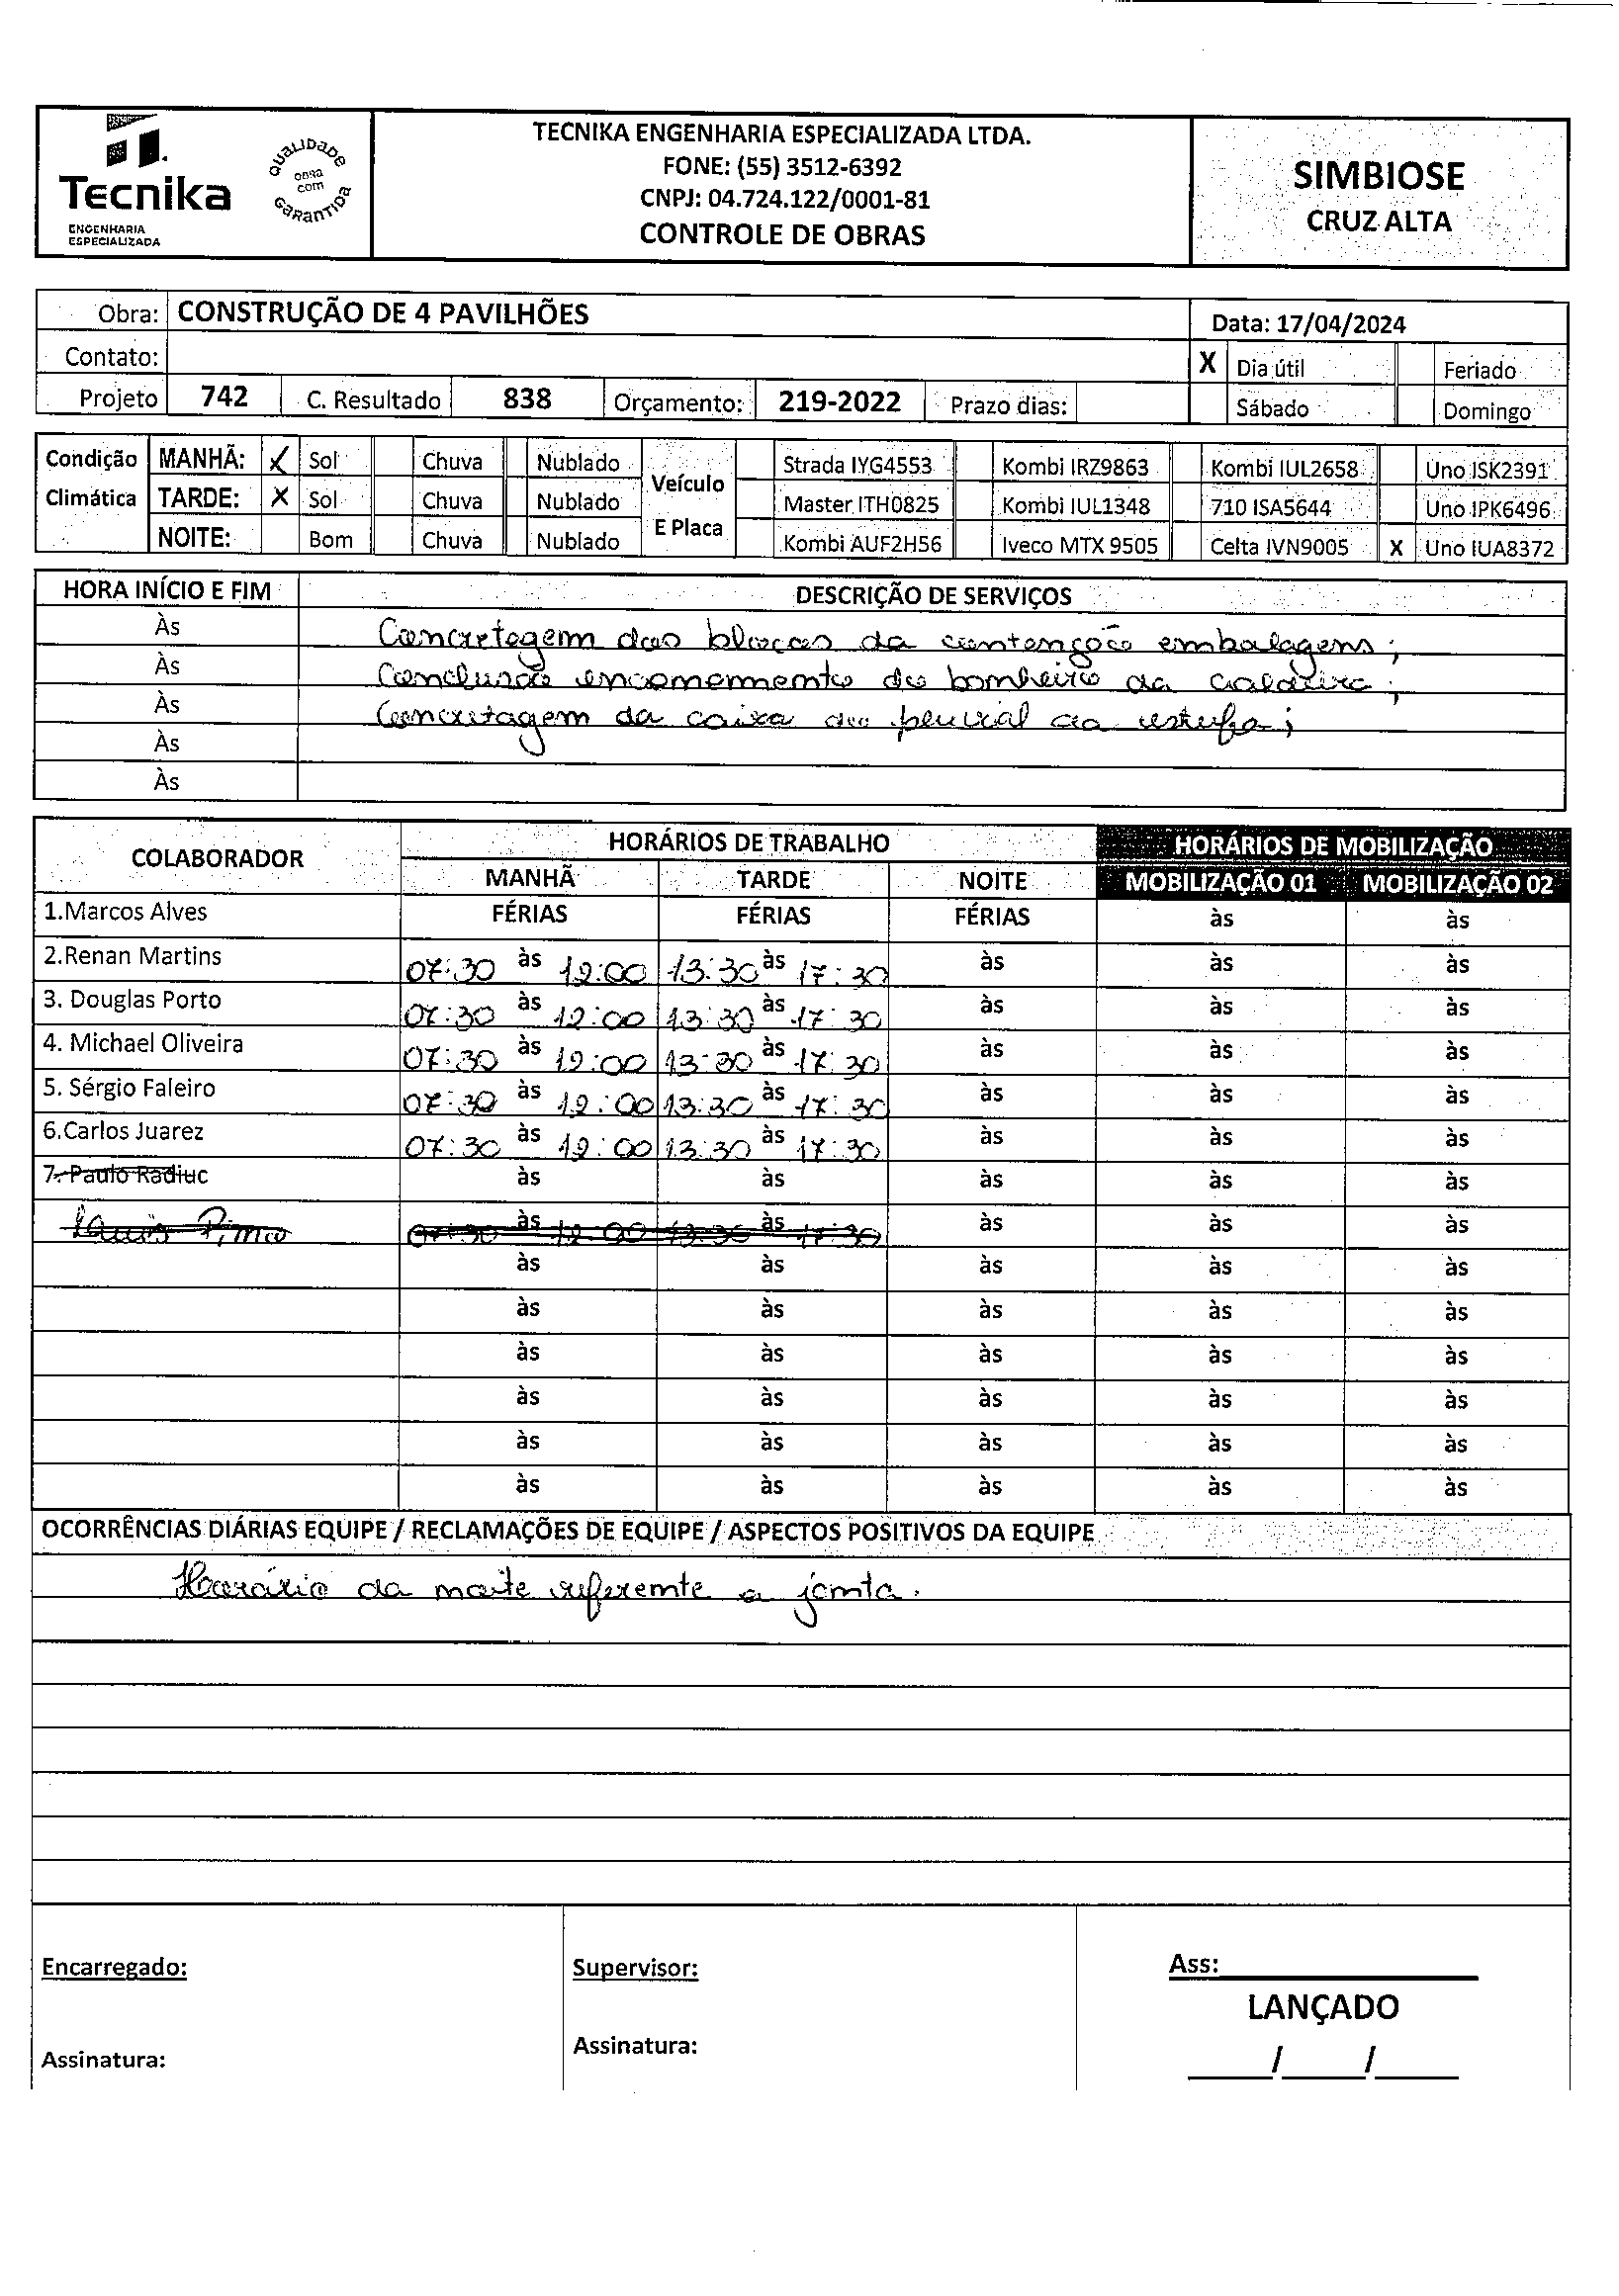 Tecnika
ENGENHARIA
ESPECIALIZADA
QUALIDADE
OBRA
COM
GARANTIDA
TECNIKA ENGENHARIA ESPECIALIZADA LTDA.
FONE: (55) 3512-6392
CNPJ: 04.724.122/0001-81
CONTROLE DE OBRAS
SIMBIOSE
CRUZ ALTA
Obra: CONSTRUÇÃO DE 4 PAVILHÕES Data: 17/04/2024
Contato: X Dia útil Feriado
Projeto 742 C. Resultado 838 Orçamento: 219-2022 Prazo dias: Sábado Domingo
Condição MANHÃ: X Sol Chuva Nublado Veículo Strada IYG4553 Kombi IRZ9863 Kombi IUL2658 Uno ISK2391
Climática TARDE: X Sol Chuva Nublado E Placa Master ITH0825 Kombi IUL1348 710 ISA5644 Uno IPK6496
NOITE: Bom Chuva Nublado Kombi AUF2H56 Iveco MTX 9505 Celta IVN9005 X Uno IUA8372
HORA INÍCIO E FIM DESCRIÇÃO DE SERVIÇOS
Às Concretagem dos blocos da contenção embalagens;
Às Conclusão encanamento do bombeiro da caldeira;
Às Concretagem da caixa do pluvial da estufa;
Às
Às
COLABORADOR HORÁRIOS DE TRABALHO HORÁRIOS DE MOBILIZAÇÃO
MANHÃ TARDE NOITE MOBILIZAÇÃO 01 MOBILIZAÇÃO 02
1.Marcos Alves FÉRIAS FÉRIAS FÉRIAS às às
2.Renan Martins 07:30 às 12:00 13:30 às 17:30 às às às
3. Douglas Porto 07:30 às 12:00 13:30 às 17:30 às às às
4. Michael Oliveira 07:30 às 12:00 13:30 às 17:30 às às às
5. Sérgio Faleiro 07:30 às 12:00 13:30 às 17:30 às às às
6.Carlos Juarez 07:30 às 12:00 13:30 às 17:30 às às às
7. Paulo Radiuc às às às às às
07:30 às 12:00 13:30 às 17:30 às às às
às às às às às
às às às às às
às às às às às
às às às às às
às às às às às
às às às às às
OCORRÊNCIAS DIÁRIAS EQUIPE / RECLAMAÇÕES DE EQUIPE / ASPECTOS POSITIVOS DA EQUIPE
Horário da noite referente a janta.
Encarregado: Supervisor: Ass:
LANÇADO
Assinatura: Assinatura: / /